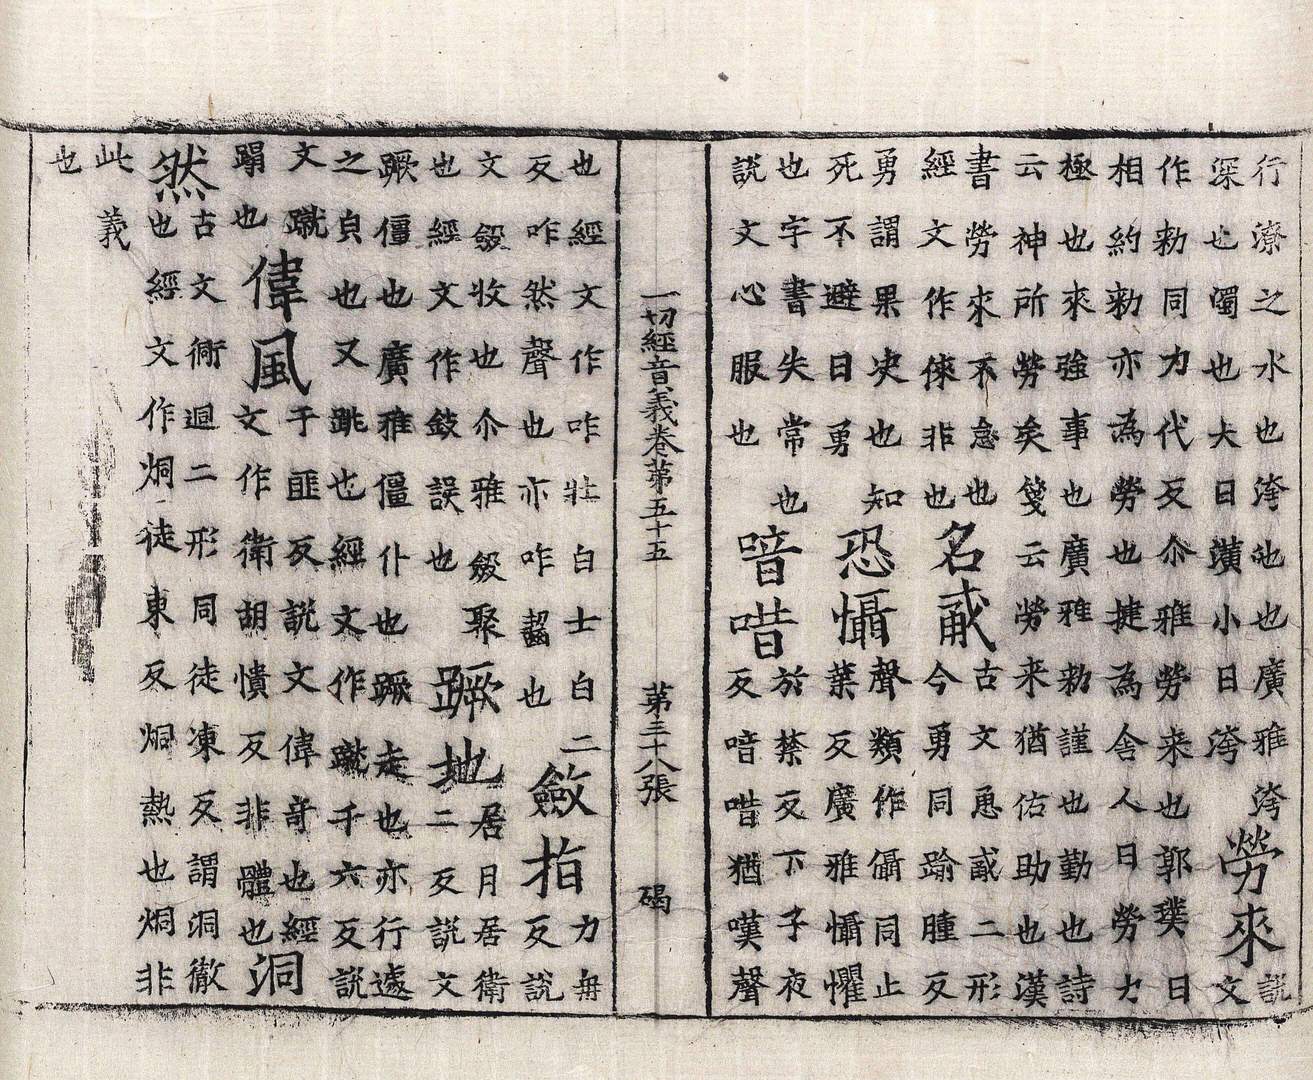 行潦之水也洿池也廣雅洿
深也濁也大曰潢小曰洿
勞來
說
文
作勑同力代反尒雅勞来也郭璞曰
相約勑亦為勞也捷為舍人曰勞力
極也來強事也廣雅勑謹也勤也詩
云神所勞矣箋云勞来猶佑助也漢
書勞來不怠也
經文作倈非也
名戚
古文恿戚二形
今勇同踰腫反
勇謂果决也知
死不避曰勇
恐懾
聲類作儑同止
葉反廣雅懾懼
也字書失常也
說文心服也
喑唶
於禁反下子夜
反喑唶猶嘆聲
一切經音義卷第五十五 第三十八張 碣
也經文作咋壯白士白二
反咋然聲也亦咋齧也
斂指
力冉
反說
文斂收也尒雅斂聚
也經文作鈙誤也
蹶地
居月居衛
二反說文
蹶僵也廣雅僵仆也蹶走也亦行遽
之皃也又跳也經文作蹴千六反說
文蹴
蹋也
偉風
于匪反說文偉奇也經
文作衛胡憒反非體也
洞然
古文衕迵二形同徒凍反謂洞徹
也經文作烔徒東反烔熱也烔非
此義
也